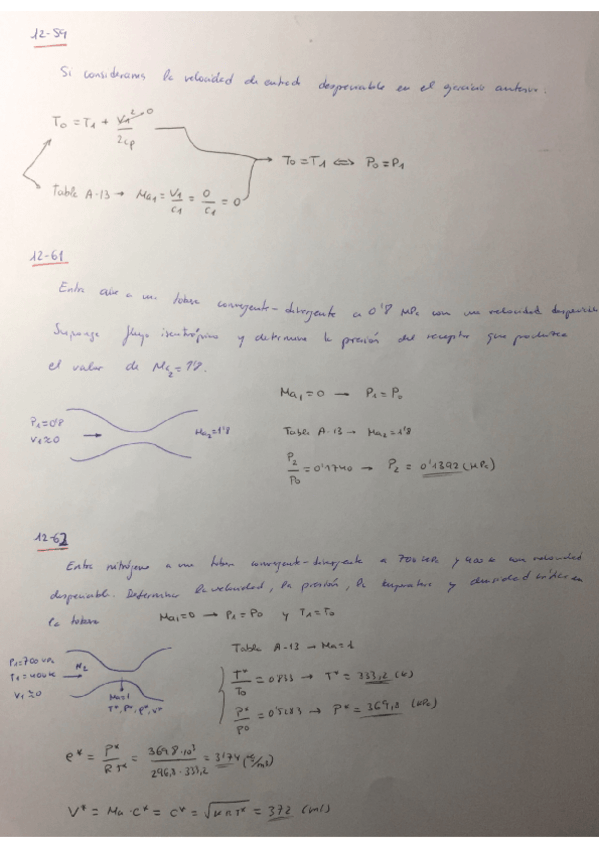 12-59
Si consideramos la velocidad de entrada despreciable en el ejercicio anterior:
T₀ = T₁ + V₁²/2cp → 0
→ T₀ = T₁ ⟺ P₀ = P₁
Tabla A-13 → Ma₁ = V₁/c₁ = 0/c₁ = 0
12-61
Entra aire a una tobera convergente-divergente a 0'8 MPa con una velocidad despreciable
Suponga flujo isentrópico y determine la presión del receptor que produzca
el valor de Ma₂ = 1'8.
Ma₁ = 0 → P₁ = P₀
P₁ = 0'8
V₁ ≈ 0
Ma₂ = 1'8
Tabla A-13 → Ma₂ = 1'8
P₂/P₀ = 0'1740 → P₂ = 0'1392 (MPa)
12-62
Entra nitrógeno a una tobera convergente-divergente a 700 kPa y 400 K con velocidad
despreciable. Determinar la velocidad, la presión, la temperatura y densidad críticas en
la tobera
Ma₁ = 0 → P₁ = P₀ y T₁ = T₀
P₁ = 700 kPa
T₁ = 400 K
V₁ ≈ 0
N₂
Ma = 1
T*, P*, ρ*, V*
Tabla A-13 → Ma = 1
T*/T₀ = 0'833 → T* = 333,2 (K)
P*/P₀ = 0'5283 → P* = 369,8 (kPa)
ρ* = P*/R T* = 369,8·10³/296,8·333,2 = 3'74 (kg/m³)
V* = Ma · c* = c* = √KRT* = 372 (m/s)